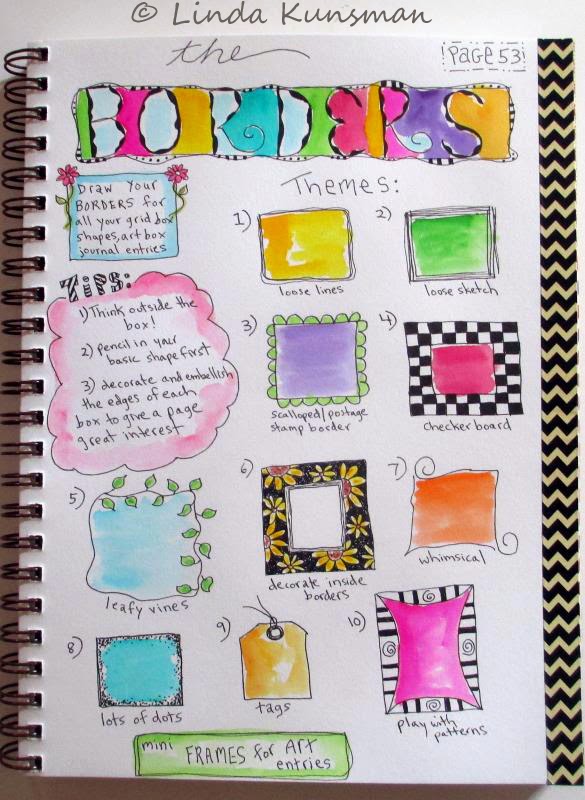 © Linda Kunsman
the
PAGE 53
BORDERS
Draw Your
BORDERS for
all your grid box
shapes, art box
journal entries
TIPS:
1) Think outside the
box!
2) pencil in your
basic shape first
3) decorate and embellish
the edges of each
box to give a page
great interest
Themes:
1)
loose lines
2)
loose sketch
3)
scalloped/postage
stamp border
4)
checkerboard
5)
leafy vines
6)
decorate inside
borders
7)
whimsical
8)
lots of dots
9)
tags
10)
play with
patterns
mini FRAMES for ART
entries